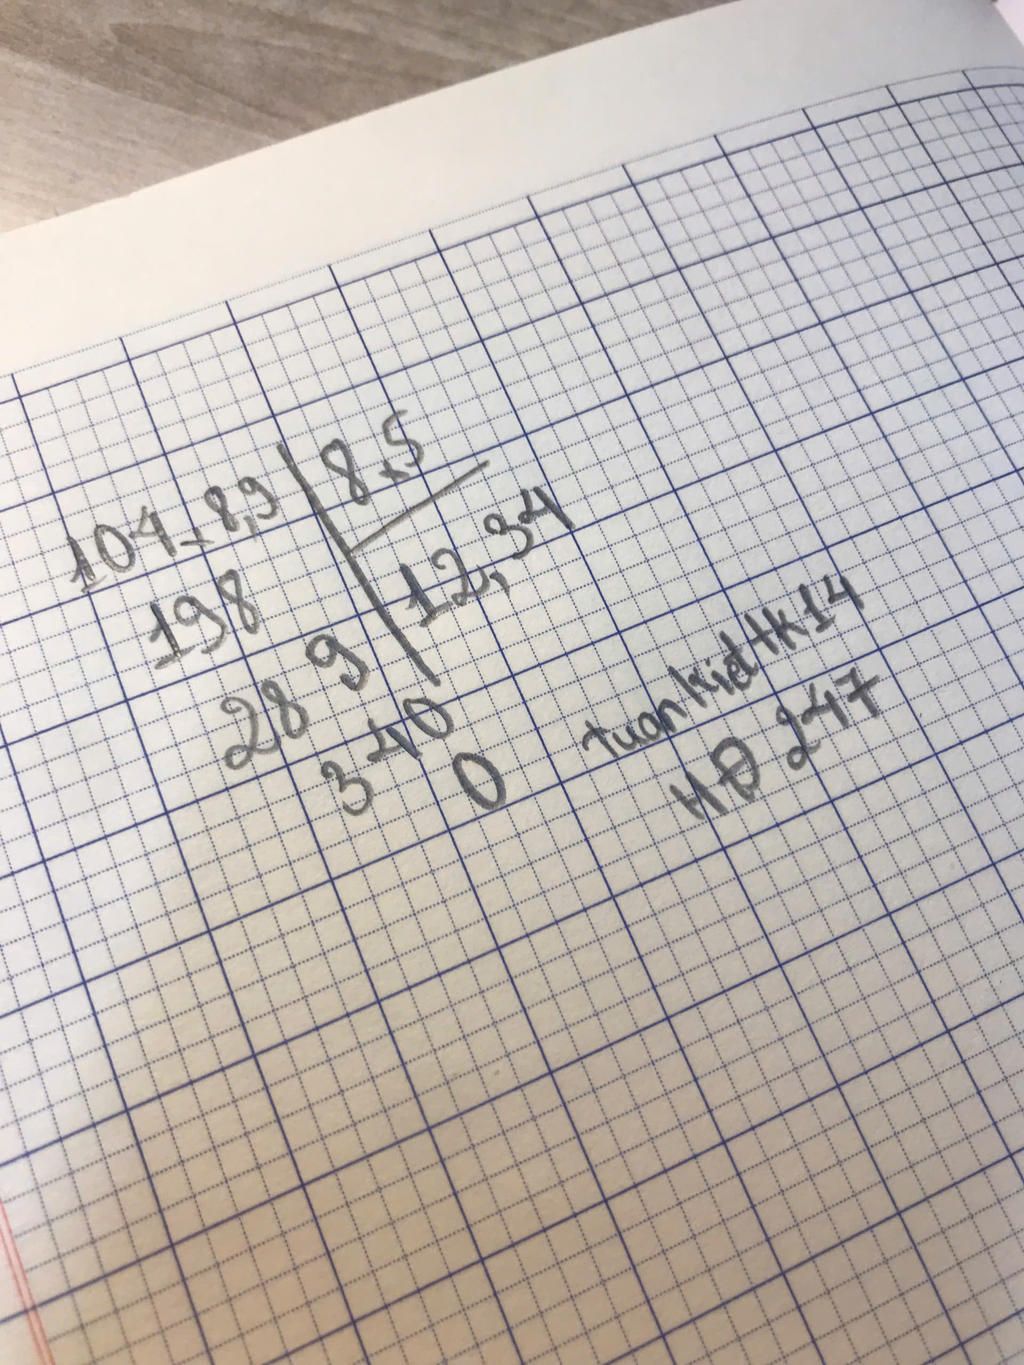 104,8,9 8,5
198 12,34
28 9
340
0
tuankietHK14
HĐ 247